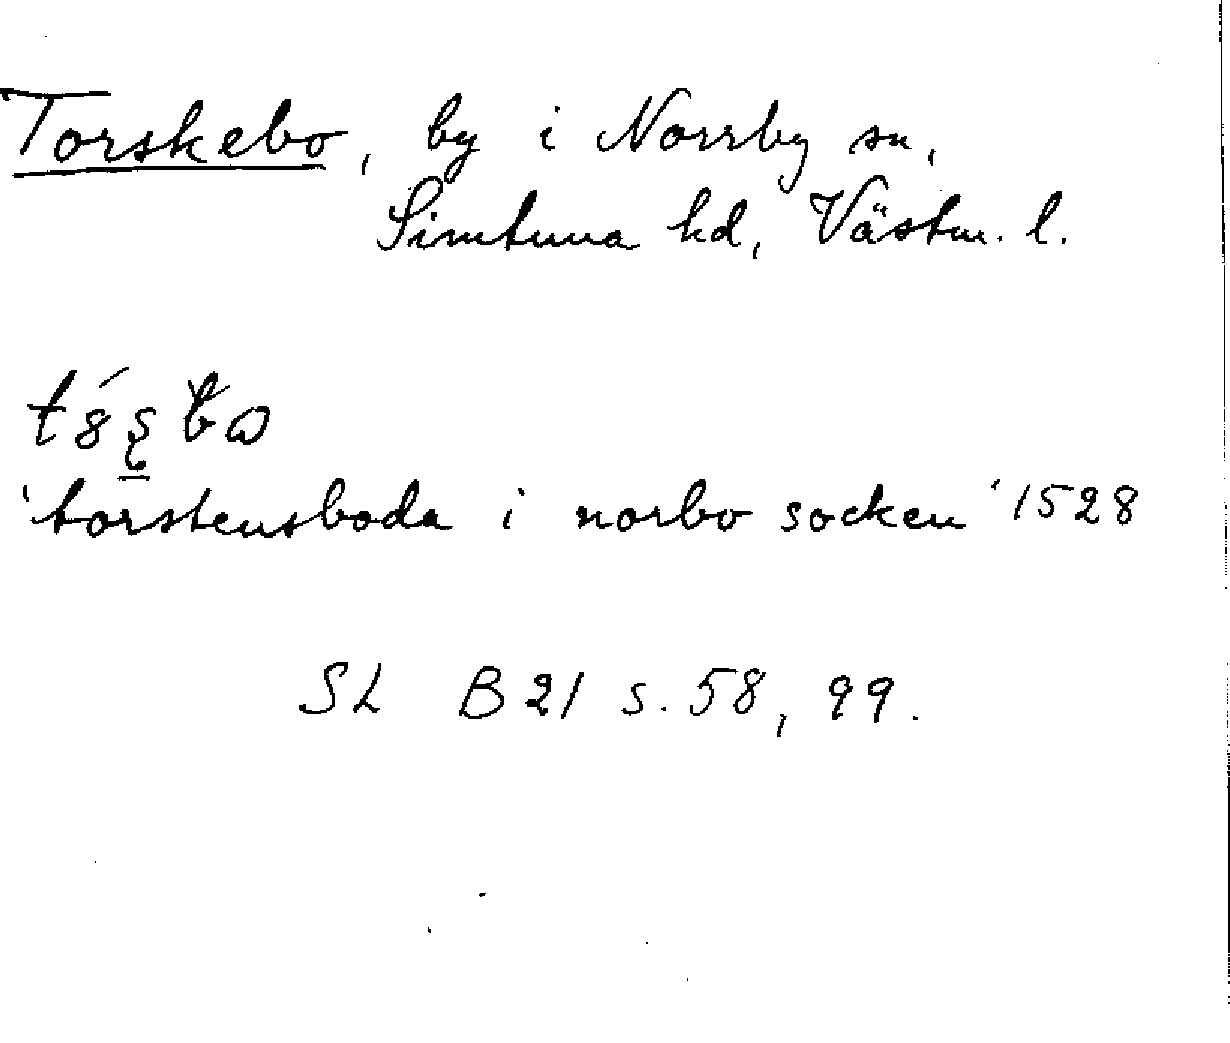 Torskebo, by i Norrby sn,
Simtuna hd, Västm. l.
'torstensboda i norbo socken' 1528
SL B21 s. 58, 99.